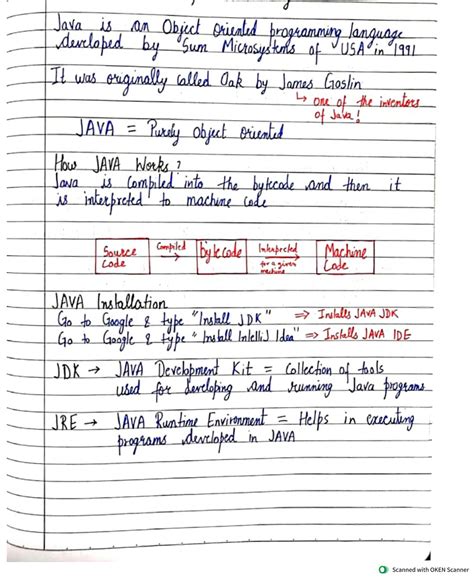 Java is an Object Oriented programming language
developed by Sum Microsystems of USA in 1991
It was originally called Oak by James Goslin
↳ one of the inventors
of Java!
JAVA = Purely Object Oriented
How JAVA Works?
Java is compiled into the bytecode and then it
is interpreted to machine code
Source
Code
Compiled
→
Bytecode
Interpreted
→
for a given
machine
Machine
Code
JAVA Installation
Go to Google & type "Install JDK" ⇒ Installs JAVA JDK
Go to Google & type "Install Intellij Idea" ⇒ Installs JAVA IDE
JDK → JAVA Development Kit = Collection of tools
used for developing and running Java programs
JRE → JAVA Runtime Environment = Helps in executing
programs developed in JAVA
Scanned with OKEN Scanner